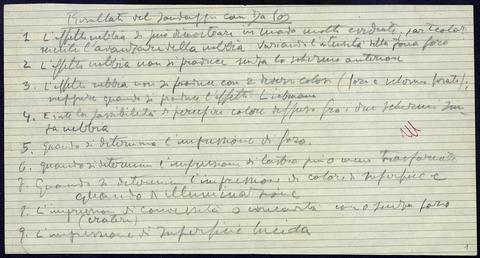 Risultati del sondaggio con Da Los
1. L'effetto nebbia si può dimostrare in modo molto evidente, particolar
mente l'avanzare della nebbia variando l'intensità della zona foro
2. L'effetto nebbia non si produce senza lo schermo anteriore
3. L'effetto nebbia non si produce con 2 diversi colori (foro e schermo forato),
neppure quando si produce l'effetto Liebmann
4. Esiste la possibilità di percepire colore diffuso fra i due schermi sen
za nebbia
5. quando si determina l'impressione di foro.
6. quando si determini l'impressione di lastra più o meno trasparente
7. Quando si determini l'impressione di colore di superficie e
quando di illuminazione
8. L'impressione di convessità o concavità con o senza foro
(crateri)
9. L'impressione di superficie lucida
1